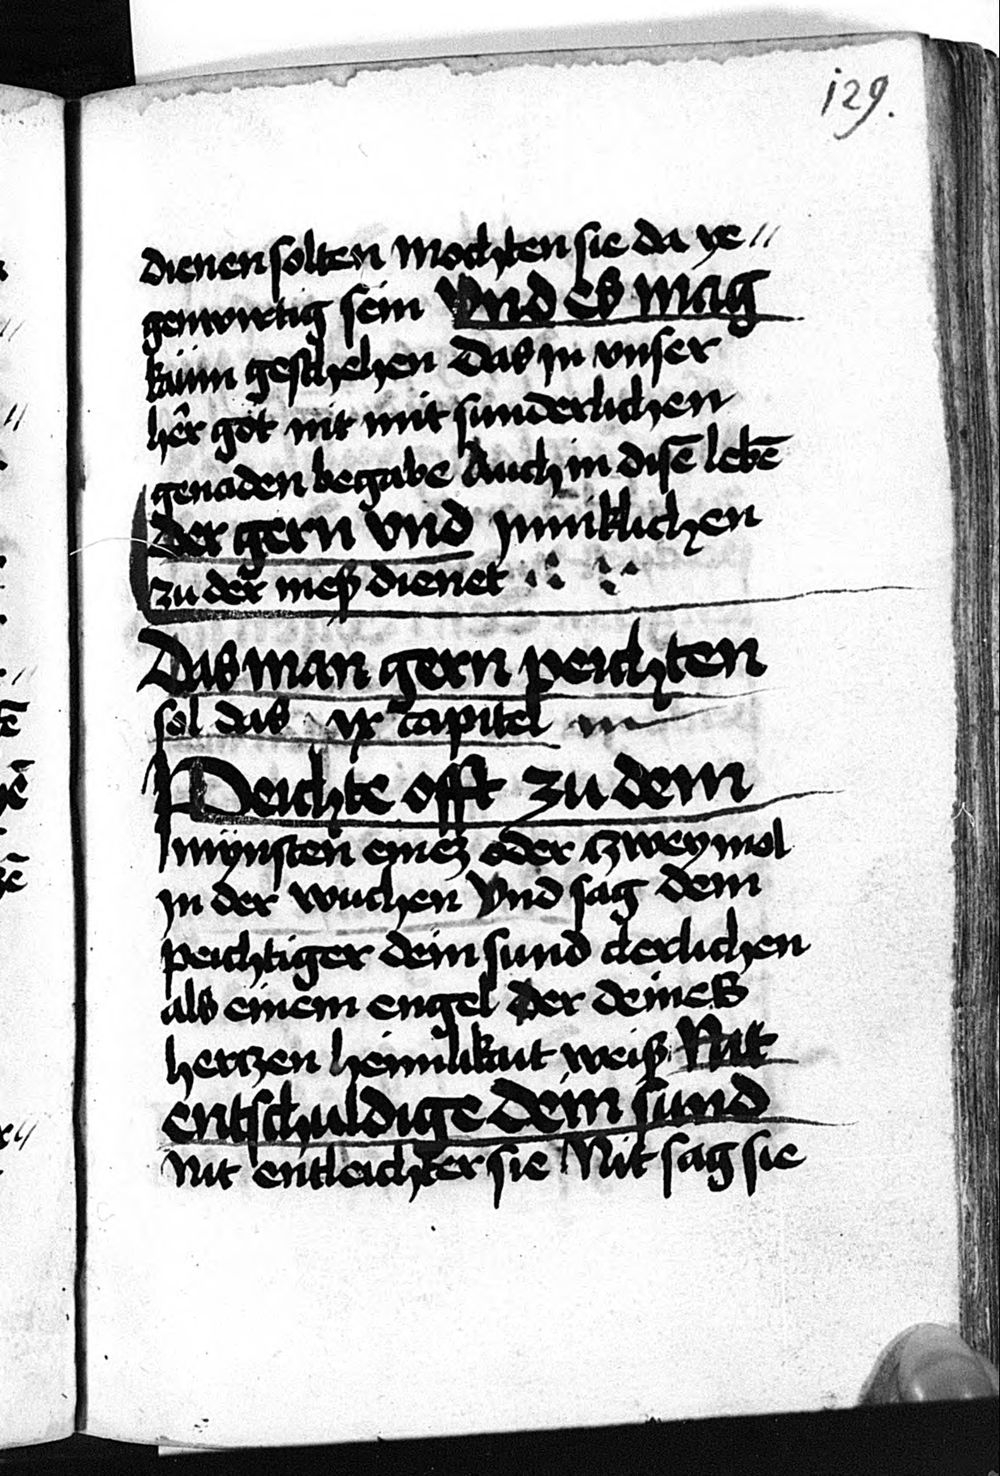 129.
dienen solten Mochten sie da ye //
genwirtig sein Vnd es mag
kaüm geschehen Das in vnser
her̂ got nit mit sunderlichen
genaden begabe Auch in disē lebē
Der gern vnd ynniklichen
zu der meß dienet
Das man gern peichten
sol das ix capitel
Peichte offt zu dem
mÿnsten einez oder zwey mol
in der wuchen Vnd sag dem
peichtiger dein sund clerlichen
als einem engel Der deines
herczen heimlikait weiß Nit
entschuldige dein sund
Nit entleichter sie Nit sag sie